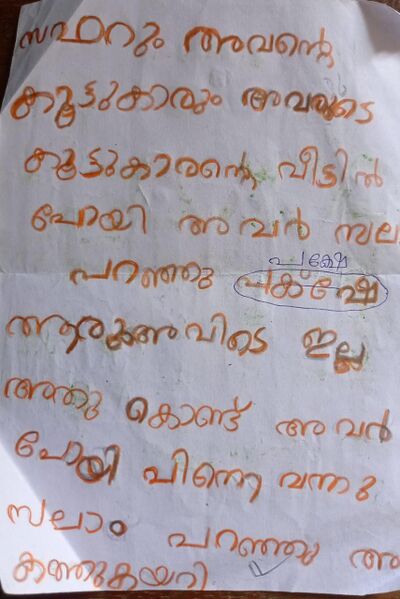 സഫറും അവൻ്റെ
കൂട്ടുകാരും അവരുടെ
കൂട്ടുകാരൻ്റെ വീട്ടിൽ
പോയി അവർ സല
പക്ഷേ
പറഞ്ഞു പകഷേ
അവിടെ ഇല്ല
അതു കൊണ്ട് അവർ
പോയി പിന്നെ വന്നു
സലാം പറഞ്ഞു അ
കത്തുകയറി